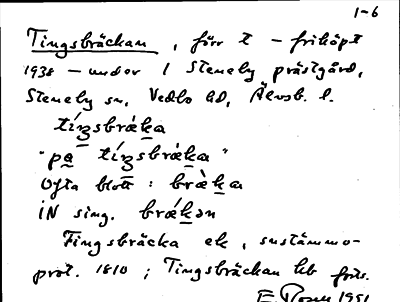 1-6
Tingsbräckan, förr t - friköpt
1938 - under 1 Steneby prästgård,
Steneby sn, Vedbo hd, Älvsb. l.
tíŋsbrǽka
"pa tíŋsbrǽka"
Ofta blott: brǽ̀ka
IN sing. brǽkən
Tingsbräcka ek, sustämmo-
prot. 1810; Tingsbräckan hb forts.
1951